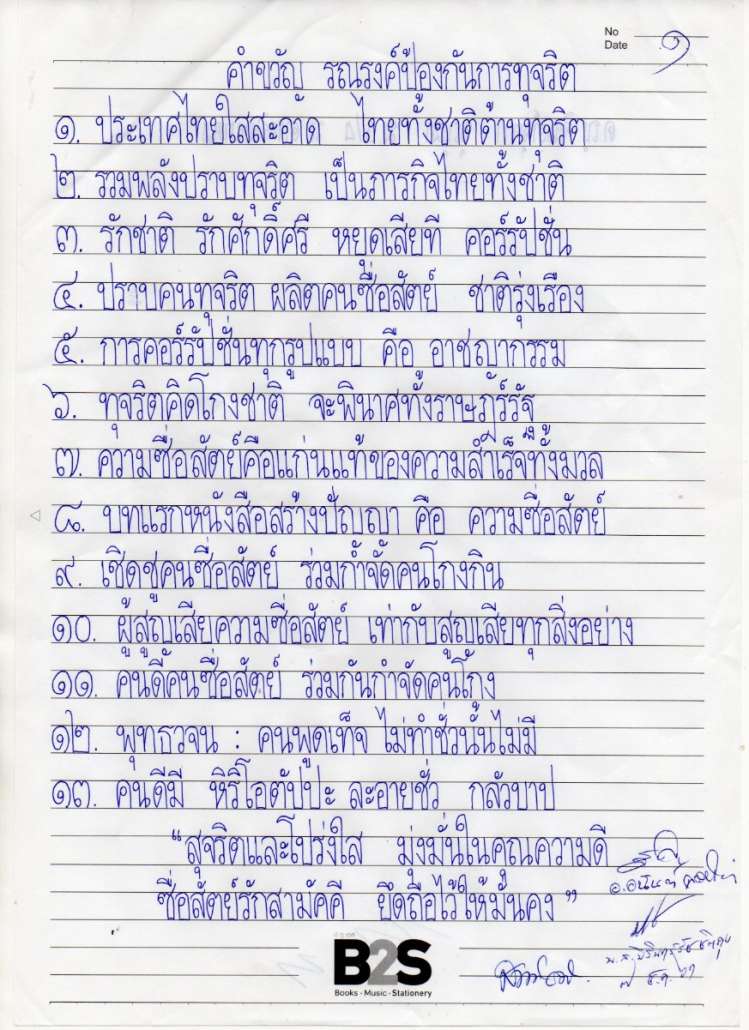 No
Date ๑
คำขวัญ รณรงค์ป้องกันการทุจริต
๑. ประเทศไทยใสสะอาด ไทยทั้งชาติต้านทุจริต
๒. รวมพลังปราบทุจริต เป็นภารกิจไทยทั้งชาติ
๓. รักชาติ รักศักดิ์ศรี หยุดเสียที คอร์รัปชั่น
๔. ปราบคนทุจริต ผลิตคนซื่อสัตย์ ชาติรุ่งเรือง
๕. การคอร์รัปชั่นทุกรูปแบบ คือ อาชญากรรม
๖. ทุจริตคิดโกงชาติ จะพินาศทั้งราษฎร์รัฐ
๗. ความซื่อสัตย์คือแก่นแท้ของความสำเร็จทั้งมวล
๘. บทแรกหนังสือสร้างปัญญา คือ ความซื่อสัตย์
๙. เชิดชูคนซื่อสัตย์ ร่วมกำจัดคนโกงกิน
๑๐. ผู้สูญเสียความซื่อสัตย์ เท่ากับสูญเสียทุกสิ่งอย่าง
๑๑. คนดีคนซื่อสัตย์ ร่วมกันกำจัดคนโกง
๑๒. พุทธวจน : คนพูดเท็จ ไม่ทำชั่วนั้นไม่มี
๑๓. คนดีมี หิริโอตัปปะ ละอายชั่ว กลัวบาป
“สุจริตและโปร่งใส มุ่งมั่นในคุณความดี
ซื่อสัตย์รักสามัคคี ยึดถือไว้ให้มั่นคง”
B2S
Books - Music - Stationery